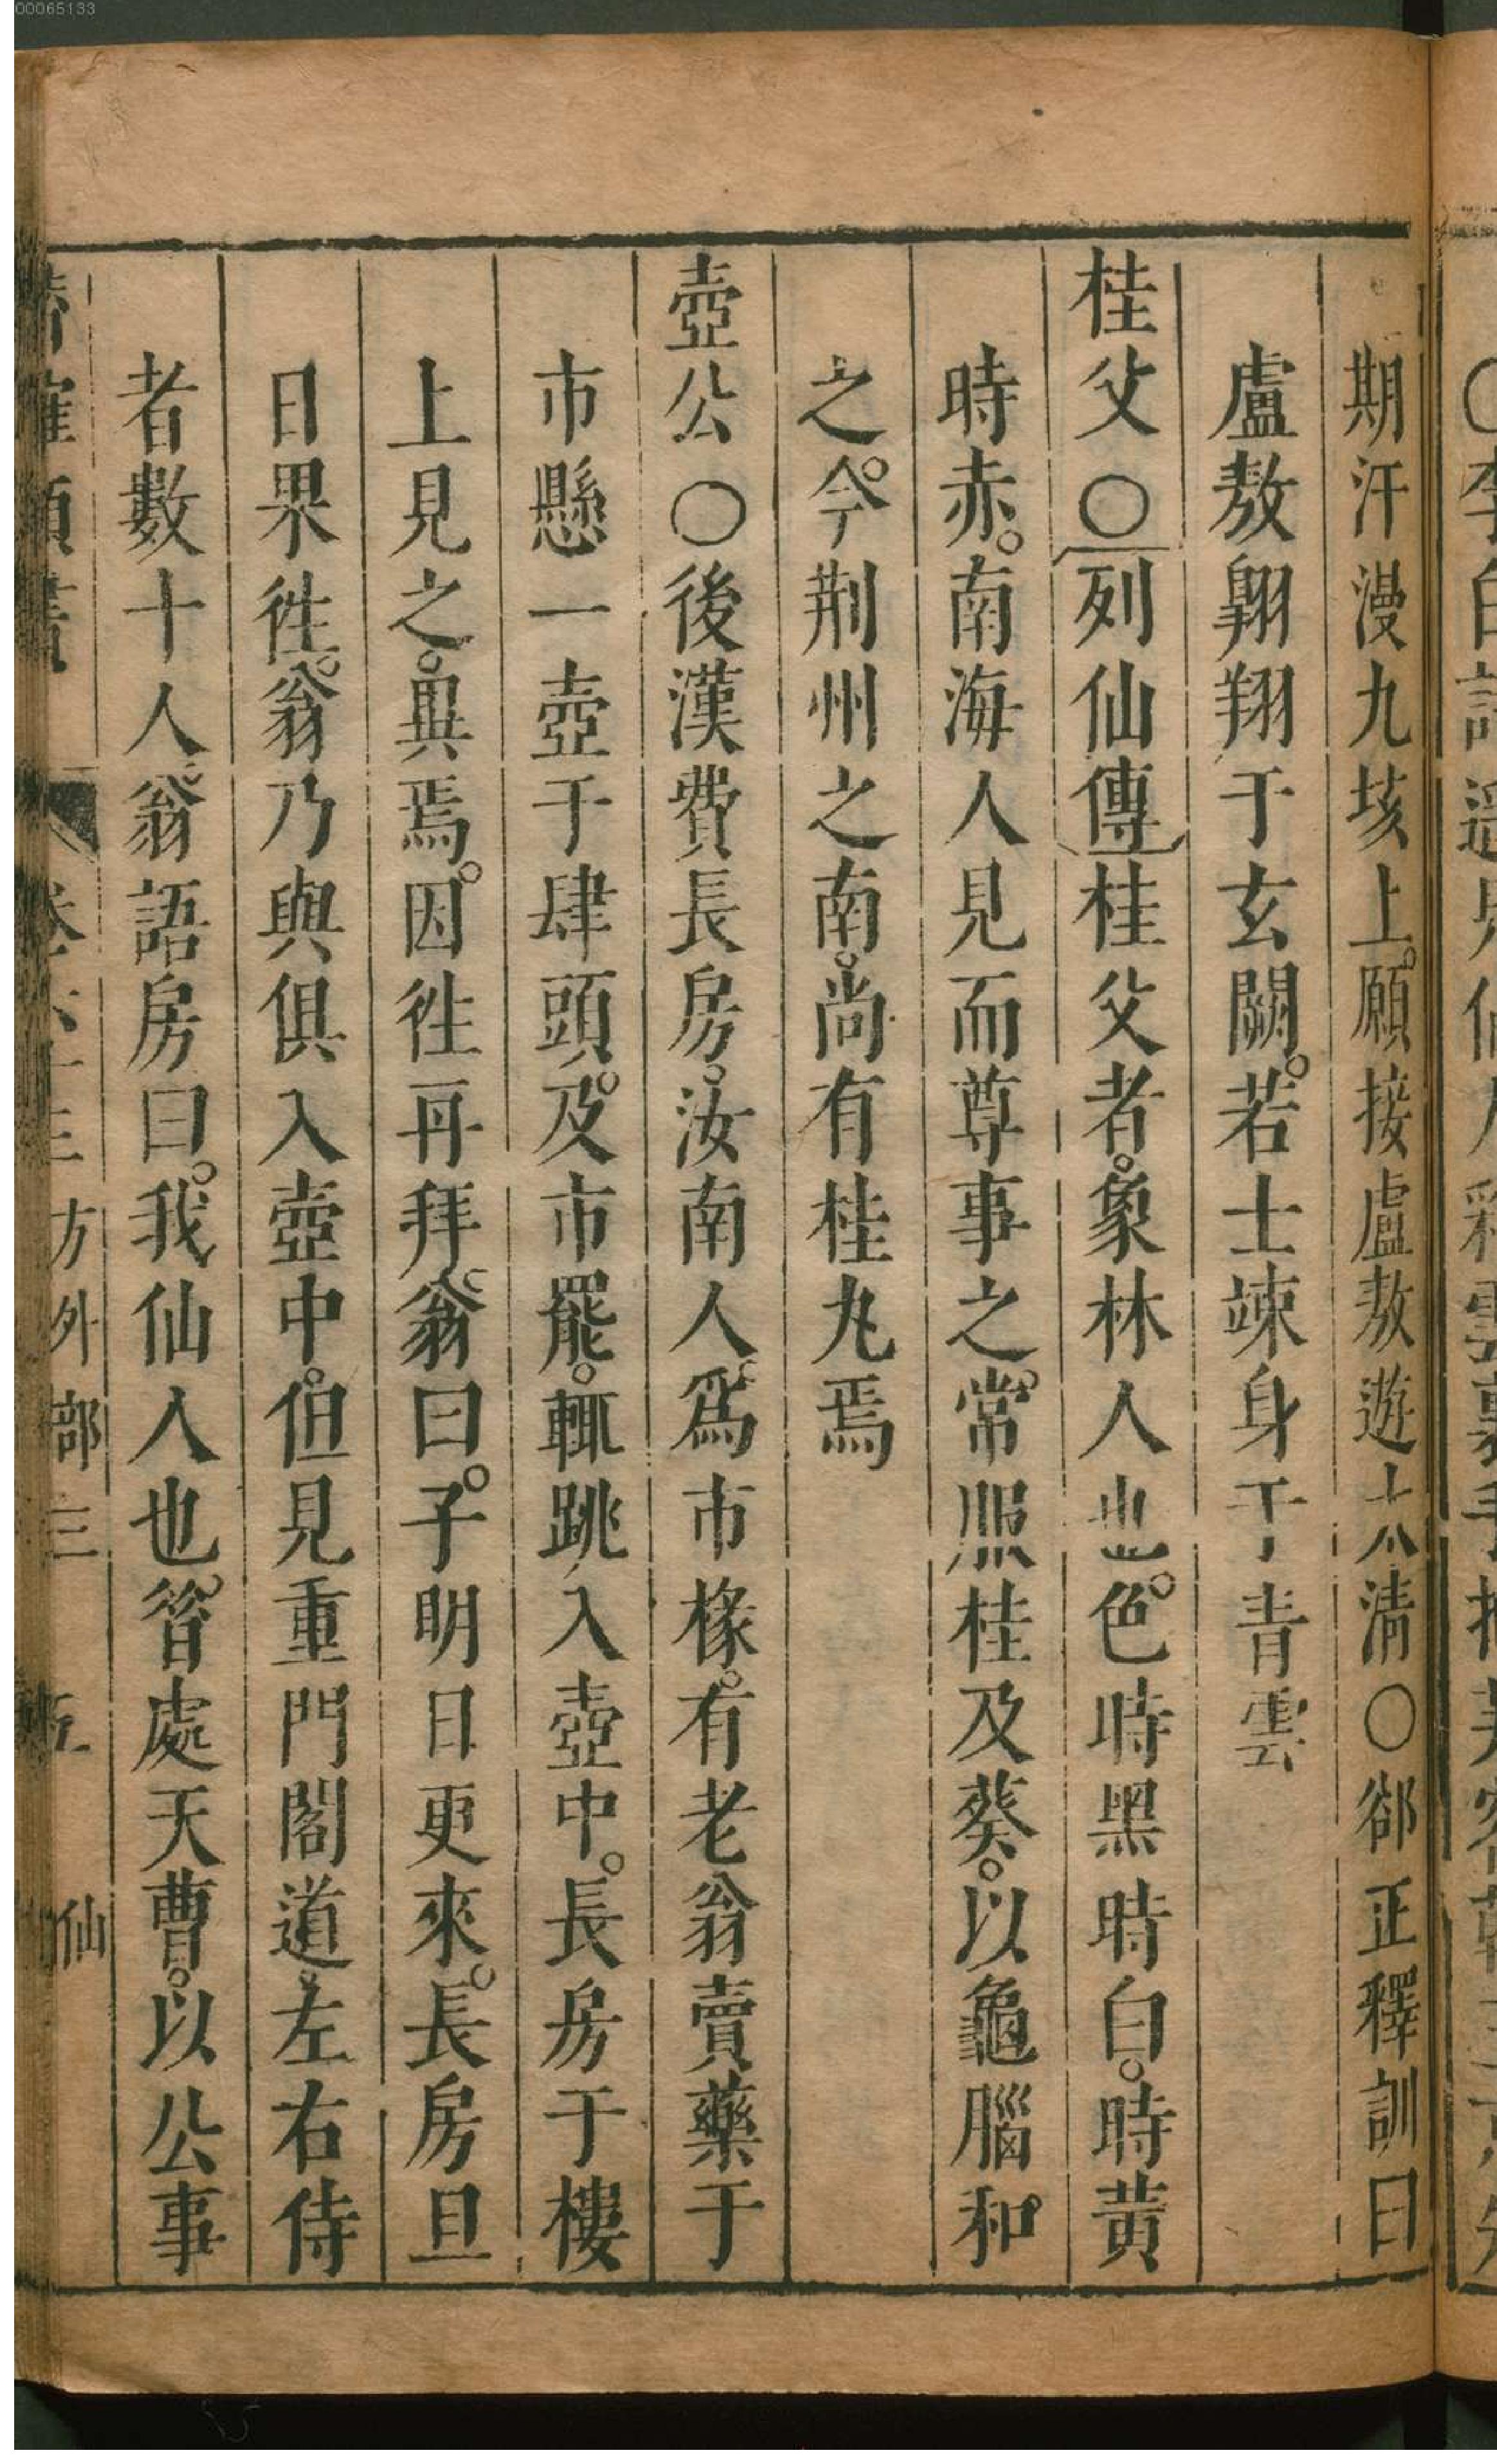 00065133
期汗漫九垓上。願接盧敖遊太清○郤正釋訓曰
盧敖翺翔于玄闕。若士竦身于青雲
桂父○列仙傳桂父者。象林人也。色時黑時白。時黃
時赤。南海人見而尊事之。常服桂及葵。以龜腦和
之。今荆州之南。尚有桂丸焉
壺公○後漢費長房。汝南人。爲市椽。有老翁賣藥于
市懸一壺于肆頭。及市罷。輒跳入壺中。長房于樓
上見之。異焉。因徃再拜。翁曰。子明日更來。長房旦
日果徃。翁乃與俱入壺中。但見重門閣道。左右侍
者數十人。翁語房曰。我仙人也。昝處天曹。以公事
方外部三 仙